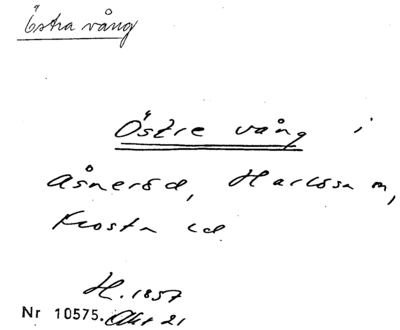 Östra vång
Östre vång i
Åsneröd, Harlösa sn,
Frosta hd
H. 1857
Nr 10575. Akt 21